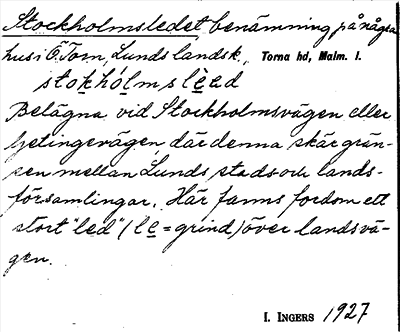 Stockholmsledet benämning på några
hus i Ö. Torn, Lunds landsk., Torna hd, Malm. l.
stokhólmslèad
Belägna vid Stockholmsvägen eller
tjetingevägen, där denna skär grän-
sen mellan Lunds stads och lands-
församlingar. Här fanns fordom ett
stort "led" (le = grind) över landsvä-
gen.
I. INGERS 1927